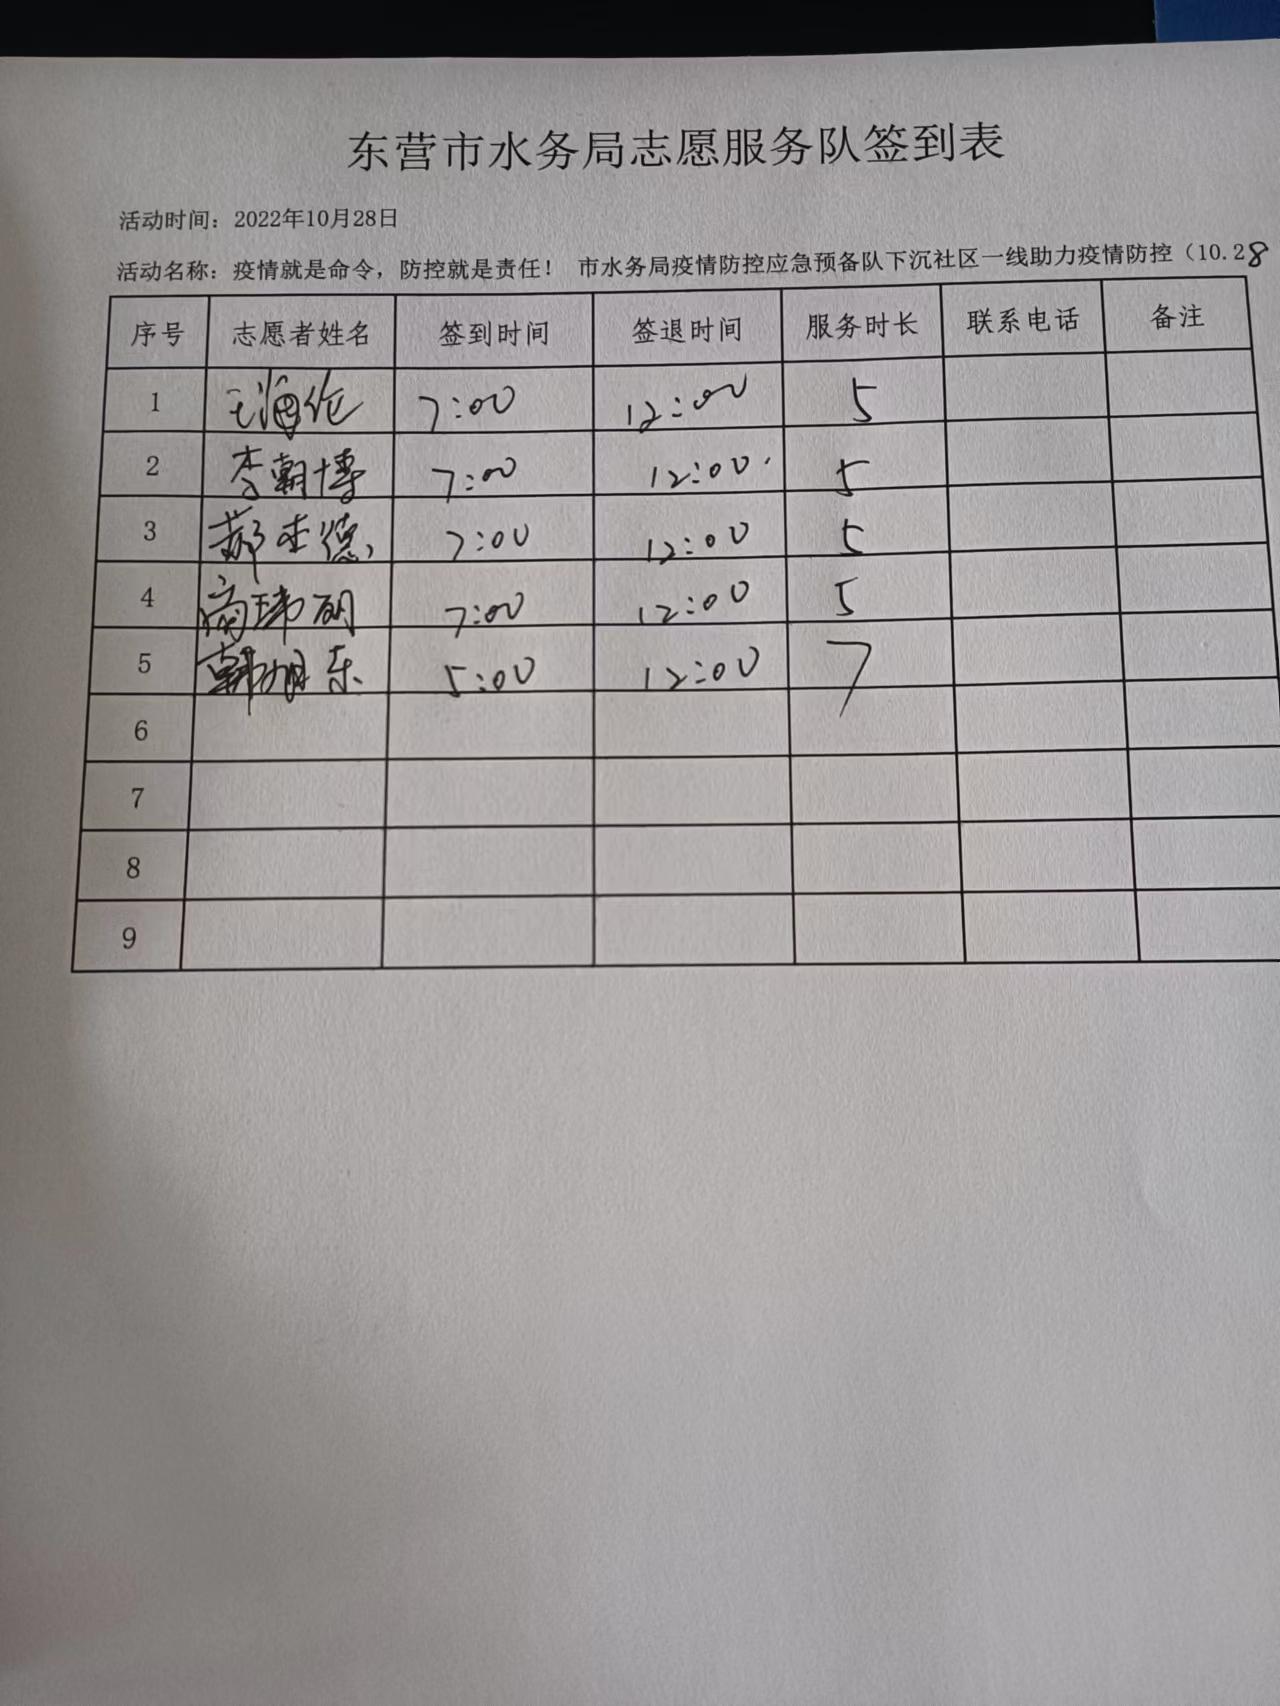 东营市水务局志愿服务队签到表
活动时间：2022年10月28日
活动名称：疫情就是命令，防控就是责任！ 市水务局疫情防控应急预备队下沉社区一线助力疫情防控（10.28
序号 志愿者姓名 签到时间 签退时间 服务时长 联系电话 备注
1 王海伦 7:00 12:00 5
2 李朝博 7:00 12:00 5
3 郝杰德 7:00 12:00 5
4 7:00 12:00 5
5 韩旭东 5:00 12:00 7
6
7
8
9